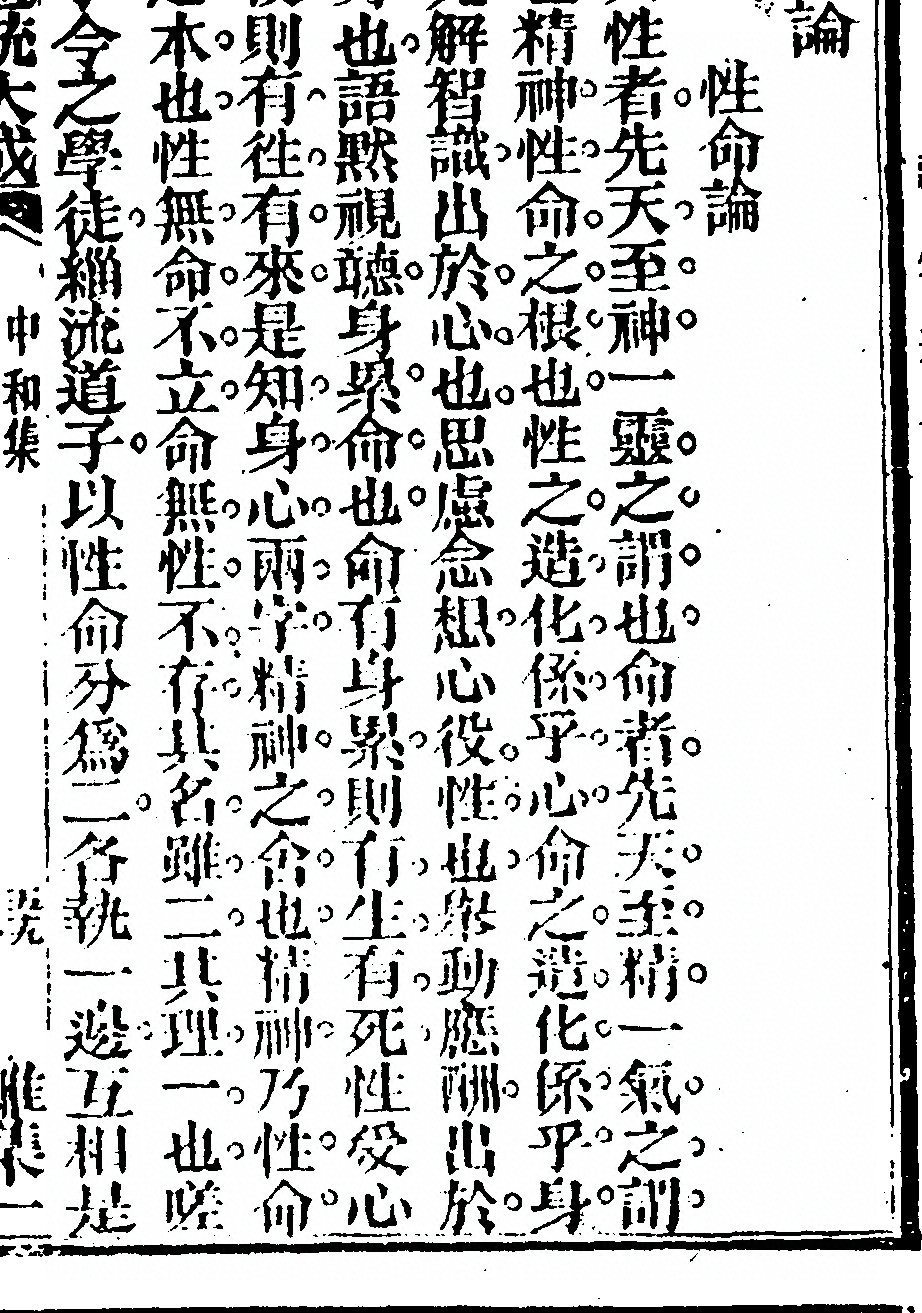 論
性命論
性者先天至神一靈之謂也命者先天至精一氣之謂
精神性命之根也性之造化係乎心命之造化係乎身
解智識出於心也思慮念想心役性也舉動應酬出於
也語默視聽身累命也命有身累則有生有死性受心
則有徃有來是知身心兩字精神之舍也精神乃性命
本也性無命不立命無性不存其名雖二其理一也嗟
今之學徒緇流道子以性命分爲二各執一邊互相是
大成
中和集